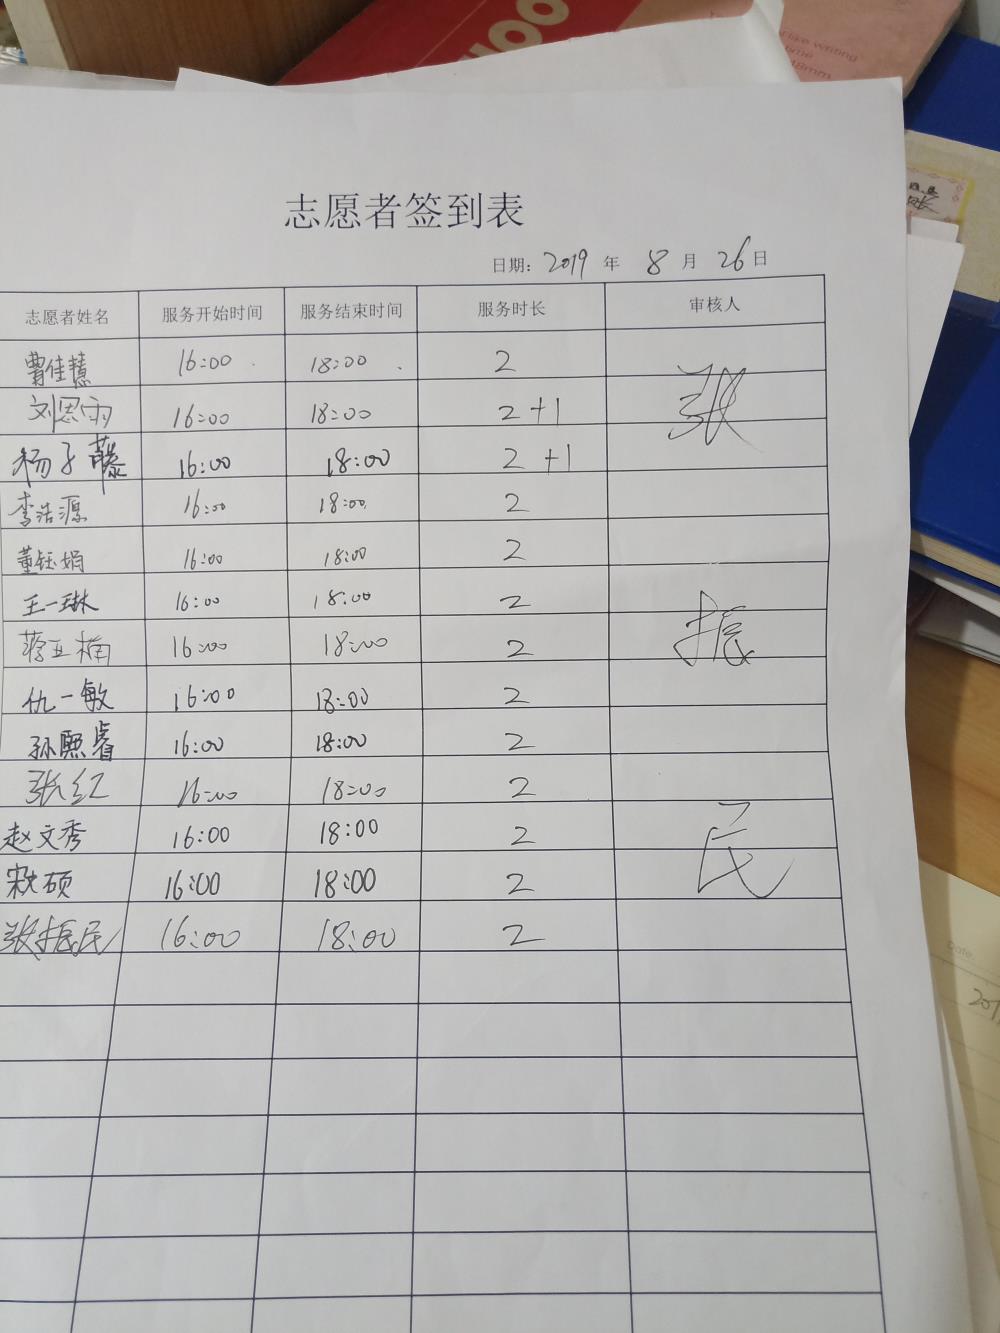 志愿者签到表
日期: 2019 年 8 月 26 日
志愿者姓名 服务开始时间 服务结束时间 服务时长 审核人
曹佳慧 16:00 18:00 2
刘恩雨 16:00 18:00 2+1 张
杨子藤 16:00 18:00 2+1
李浩源 16:00 18:00 2
董钰娟 16:00 18:00 2
王一琳 16:00 18:00 2
蒋亚楠 16:00 18:00 2 振
仇一敏 16:00 18:00 2
孙熙睿 16:00 18:00 2
张红 16:00 18:00 2
赵文秀 16:00 18:00 2 民
宋硕 16:00 18:00 2
张振民 16:00 18:00 2
like writing
Date: